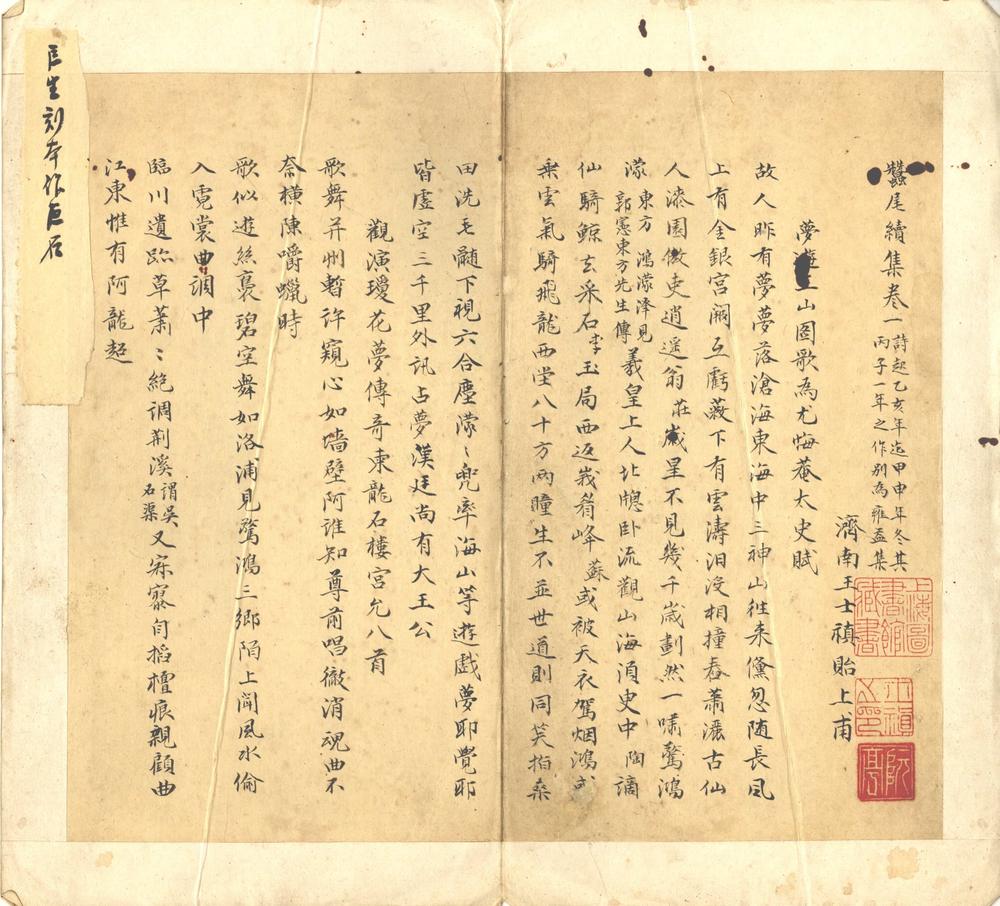 蠶尾續集卷一 詩起乙亥年迄甲申年冬其
丙子一年之作別為雍益集
濟南王士禛貽上甫
夢遊三山圖歌為尤悔菴太史賦
故人昨有夢夢落滄海東海中三神山往來儵忽随長風
上有金銀宮闕互虧蔽下有雲濤汨没相撞舂蕭灑古仙
人漆園傲吏逍遥翁莊嵗星不見幾千歳劃然一嘯驚鴻
濛東方 鴻濛澤見郭憲東方先生傳羲皇上人北牕卧流觀山海湏史中陶謫
仙騎鯨去采石李玉局西返峩眉峰蘇或被天衣駕烟鴻或
乗雲氣騎飛龍西堂八十方兩瞳生不並世道則同笑指桑
田洗毛髓下視六合塵濛〻兜率海山等遊戯夢耶覺耶
皆虚空三千里外訊占夢漢廷尚有大王公
觀演瓊花夢傳奇柬龍石樓宮允八首
歌舞并州暫許窺心如墻壁阿誰知尊前唱徹消魂曲不
奈橫陳嚼蠟時
歌似遊絲裊碧空舞如洛浦見驚鴻三鄉陌上聞風水偷
入霓裳曲調中
臨川遺跡草蕭〻絶調荆溪謂吳石渠又寂寥自搯檀痕親顧曲
江東惟有阿龍超
巨生刻本作巨石
上海圖書館藏書
王士禛印
阮亭